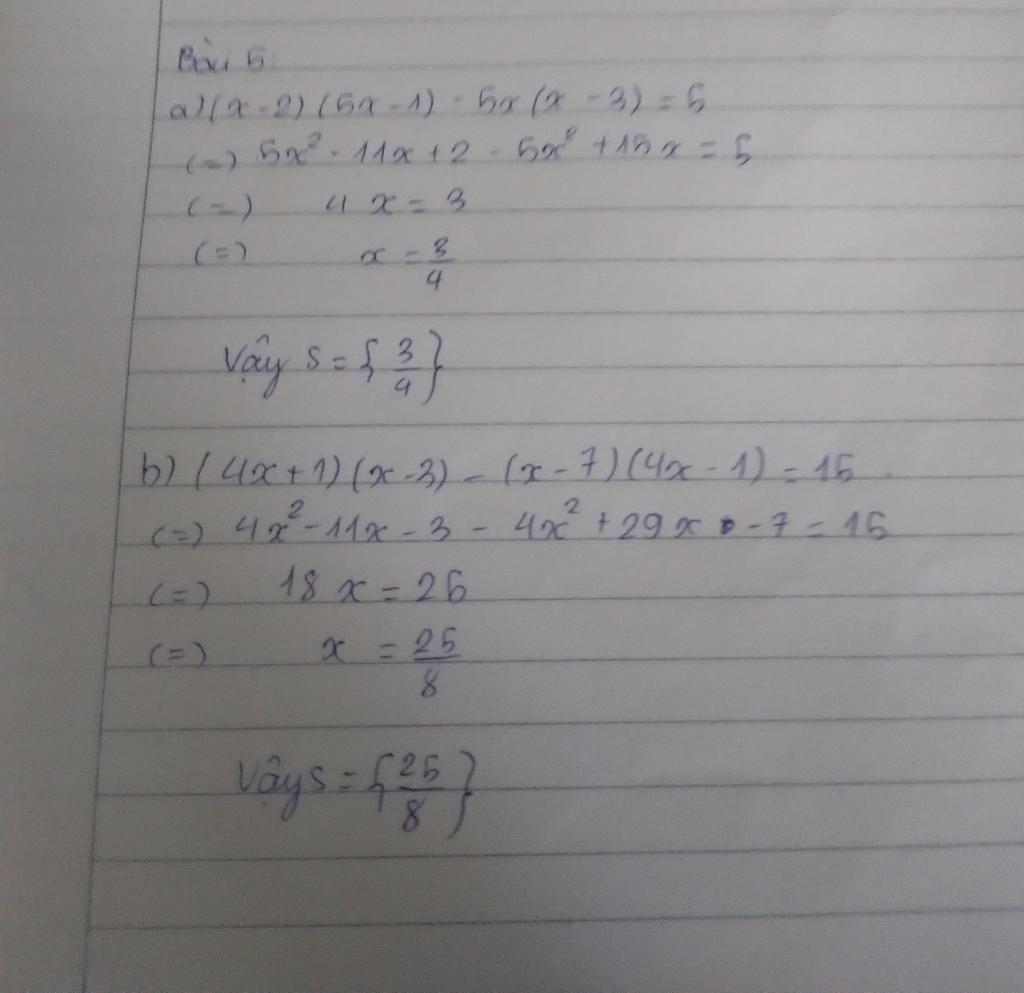 Bài 5:
a) (x - 2) (5x - 1) - 5x (x - 3) = 5
(=) 5x² - 11x + 2 - 5x² + 15x = 5
(=) 4 x = 3
(=) x = 3/4
Vậy S = { 3/4 }
b) ( 4x + 1) (x - 3) - (x - 7) (4x - 1) = 15
(=) 4x² - 11x - 3 - 4x² + 29x - 7 = 15
(=) 18 x = 25
(=) x = 25/8
Vậy S = { 25/8 }